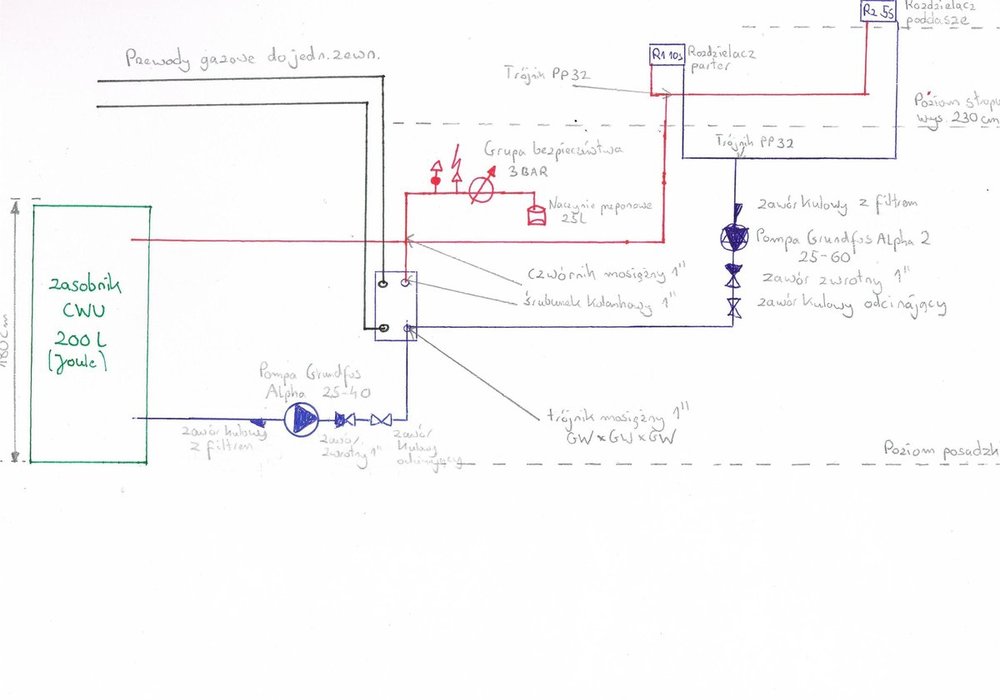 R2 5s
Rozdzielacz
poddasze
Przewody gazowe do jedn. zewn.
R1 10s
Rozdzielacz
parter
Trójnik PP32
Poziom stropu
wys. 230cm
Trójnik PP32
Grupa bezpieczeństwa
3 BAR
Naczynie preponowe
25L
zawór kulowy z filtrem
Pompa Grundfos Alpha 2
25-60
zawór zwrotny 1"
zawór kulowy odcinający
czwórnik mosiężny 1"
Śrubunek kolankowy 1"
zasobnik
CWU
200L
(Joule)
180cm
Pompa Grundfos
Alpha 25-40
zawór kulowy
z filtrem
zawór
zwrotny 1"
zawór
kulowy
odcinający
trójnik mosiężny 1"
GW x GW x GW
Poziom posadzk